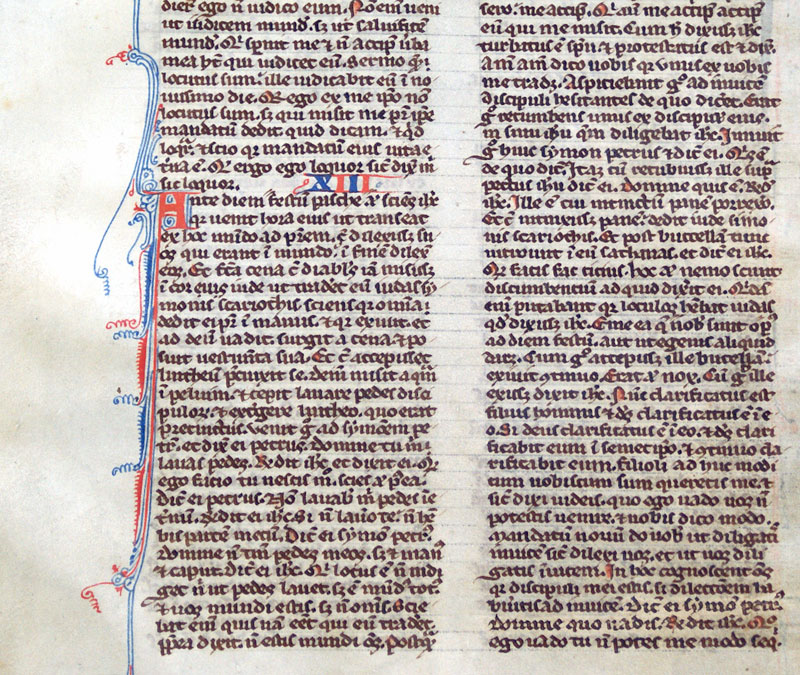 ego nō iudico eum. Nō em̄ ueni
ut iudicem mundū. sꝫ ut saluificem
mundū. Qi spnit me ⁊ n̄ accipit ūba
mea hꝫ qui iudicet eū. Sermo quē
locutus sum. ille iudicabit eū in no
uissimo die. Qꝛ ego ex me ip̄o nō
locutus sum. sꝫ qui misit me pat̄ ip̄e
mandatū dedit quid dicam. ⁊ qͥd
loqͣr. ⁊ scio qꝛ mandatū eius uita e
t̄na ē. Qͥ ergo ego loquor sic̄ dix̄ m̄
sic loquor. XIII.
Ante diem festū pasche sciēs ihc̄
qꝛ uenit hora eius ut transeat
ex hoc mundo ad pr̄em. cū dilexisset su
os qui erant in mundo. in finē dilex̄
eos. Et fc̄a cena cū diabolꝰ iā misisset
in cor eius ut traderet eū iudas sy
monis scariothis. sciens qꝛ omnia
dedit ei pr̄ in manus. ⁊ qꝛ exiuit. et
ad deū uadit. surgit a cena ⁊ po
nit uestimta sua. Et cū accepisset
lintheū p̄cinxit se. dein̄ misit aquā
in peluim. ⁊ cepit lauare pedes disci
pulorꝝ. ⁊ extergere lintheo. quo erat
precinctus. uenit gͦ ad symonem pe
trū. et dix̄ ei petrus. Domine tu m̄
lauas pedes. Rn̄dit ihc̄. et dixit ei. Qd̄
ego facio tu nescis m̄. scies aūt postea.
Dic̄ ei petrus. Nō lauab m̄ pedes in e
t̄nū. Rn̄dit ei ihc̄. Si n̄ lauero te. n̄ heb̄
bis parte mecū. Dic̄ ei symō petrꝰ.
Domine n̄ tm̄ pedes meos. sꝫ ⁊ manꝰ
⁊ caput. Dic̄ ei ihc̄. Qi lotus ē n̄ indi
get n̄ ut pedes lauet. sꝫ ē mundꝰ totꝰ.
⁊ uos mundi estis. sꝫ n̄ oms̄. Scie
bat em̄ qui nā eēt qui eū tradet.
pp̄ea dixit. n̄ estis mundi oms̄. Postqͣ
sero. me accipit. Qi aūt me accipit accipit
eū qui me misit. Cum h̄ dixisset ihc̄
turbatus ē spū ⁊ protestatus est ⁊ dix̄.
Am̄ am̄ dico uobis qꝛ unus ex uobis
me tradet. Aspiciebant gͦ ad inuicē
discipuli hesitantes de quo dicet. Erat
gͦ recumbens unus ex discipulis eius
in sinu ihū quē diligebat ihc̄. Innuit
gͦ huic symon petrus ⁊ dic̄ ei. Qis ē
de quo dic̄. Itaqꝫ cū recubuisset ille suꝑ
pectus ihū dic̄ ei. Domine quis ē. Rn̄d
ihc̄. Ille ē cui intinctū panē porrexo.
Et cū intinxisset panē. dedit iude simo
nis scariothis. Et post buccellam tunc
introiuit in eū sathanas. et dic̄ ei ihc̄.
Qͦ facis fac citius. Hoc aūt nemo sciuit
discumbentiū ad quid dixit ei. Qidā
em̄ putabant qꝛ loculos hēbat iudas
qd̄ dixisset ihc̄. Eme ea que nob̄ sunt opꝰ
ad diem festū. aut ut egenis aliquid
daret. Cum gͦ accepisset ille buccellam.
exiuit ꝯtinuo. Erat aūt nox. Cū gͦ ille
exisset dixit ihc̄. Nūc clarificatus est
filius hominis ⁊ deꝰ clarificatus ē in e
o. Si deus clarificatus ē in eo. ⁊ deꝰ clari
ficabit eum in semetip̄o. ⁊ ꝯtinuo cla
rificabit eum. filioli ad huc modi
cum uobiscum sum queretis me. ⁊
sic̄ dixi iudeis. quo ego uado uos n̄
potestis uenire. ⁊ uobis dico modo.
Mandatū nouū do uob̄ ut diligatis
inuicē sic̄ dilexi uos. et ut uos dili
gatis inuicem. In hoc cognoscent oms̄
qꝛ discipuli mei estis. si dilectōem ha
bueritis ad inuicē. Dic̄ ei symō petrꝰ.
Domine quo uadis. Rn̄dit ihc̄. Qͦ
ego uado tu n̄ potes me modo seqͥ.